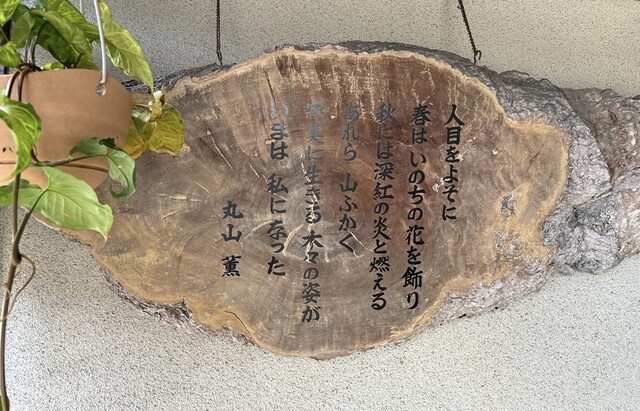 人目をよそに
春はいのちの花を飾り
秋には深紅の炎と燃える
あれら 山ふかく
寂寞に生きる木々の姿が
いまは 私になった
丸山 薫